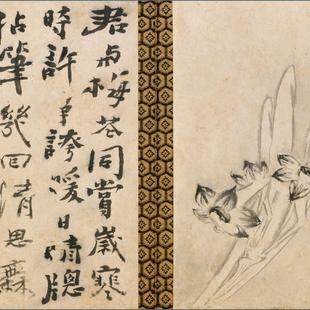 君与梅花同賞歲寒
時許爭誇暖日晴牕
拈筆幾回清思無